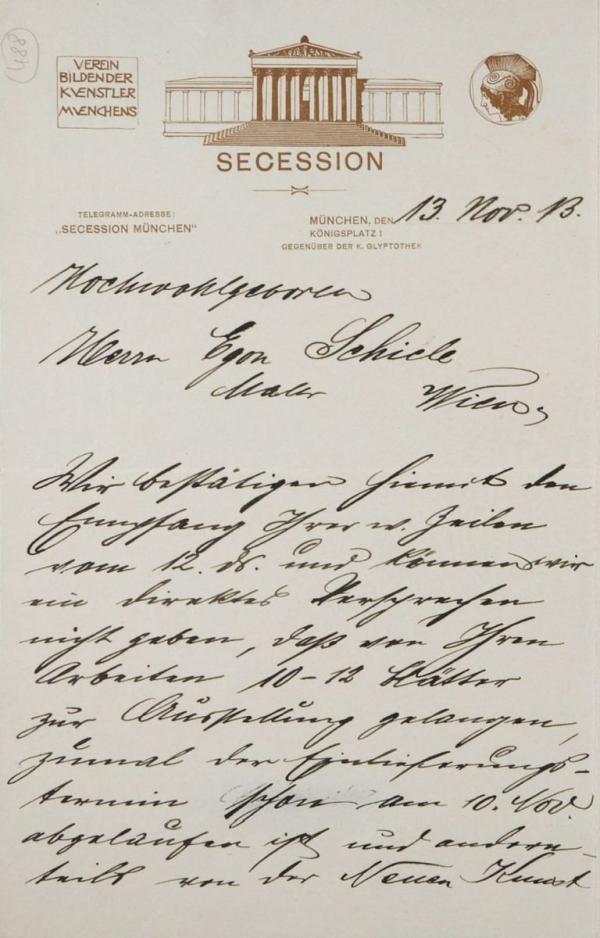 488
VEREIN
BILDENDER
KVENSTLER
MVENCHENS
SECESSION
TELEGRAMM-ADRESSE:
„SECESSION MÜNCHEN“
MÜNCHEN, DEN 13. Nov. 13.
KÖNIGSPLATZ 1
GEGENÜBER DER K. GLYPTOTHEK
Hochwohlgeboren
Herrn Egon Schiele
Maler Wien,
Wir bestätigen hiemit den
Empfang Ihrer w. Zeilen
vom 12. ds. und können wir
ein direktes Versprechen
nicht geben, daß von Ihren
Arbeiten 10-12 Blätter
zur Ausstellung gelangen,
zumal der Einlieferungs-
termin schon am 10. Nov.
abgelaufen ist und andern-
teils von der Neuen Kunst